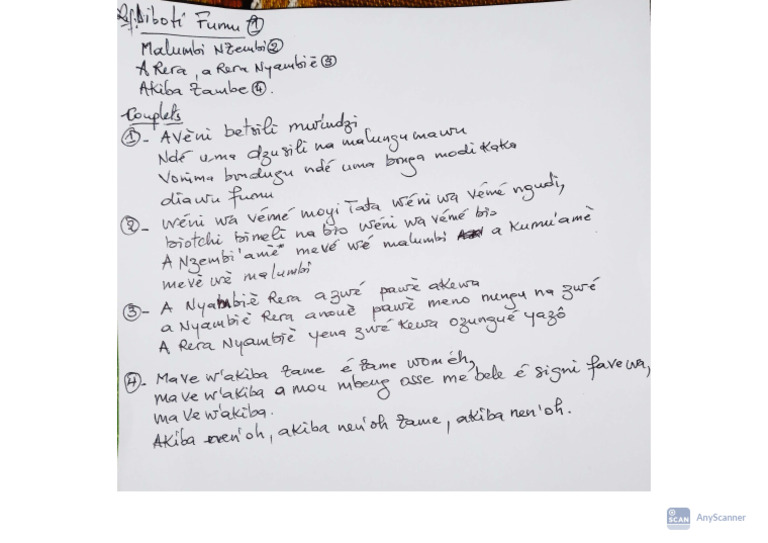 Rf. Diboti Fumu ①
Malumbi Nzembi ②
A Rera, a Rera Nyambiè ③
Akiba Zambe ④.
Couplets
① - Avèni betsili mwindzi
Ndé uma dzusili na malungu mawu
Vonima bundugu ndé uma bonga modi kaka
diawu fumu
② - Wéni wa vémé moyi Tata wéni wa vémé ngudi,
biotchi bimeli na bio wéni wa vémé bio
A Nzembi'amè mevé wé malumbi a Kumu'amè
mevè wè malumbi
③ - A Nyambiè Rera azwé pawè akewa
a Nyambiè Rera anouè pawè meno mungu na zwé
A Rera Nyambiè yena zwé kewa ozungué yazô
④ - Ma ve w'akiba zame é zame woméh,
ma ve w'akiba a mou mbeng asse me bele é signi fave wa,
ma ve w'akiba.
Akiba nen'oh, akiba nen'oh zame, akiba nen'oh.
SCAN AnyScanner